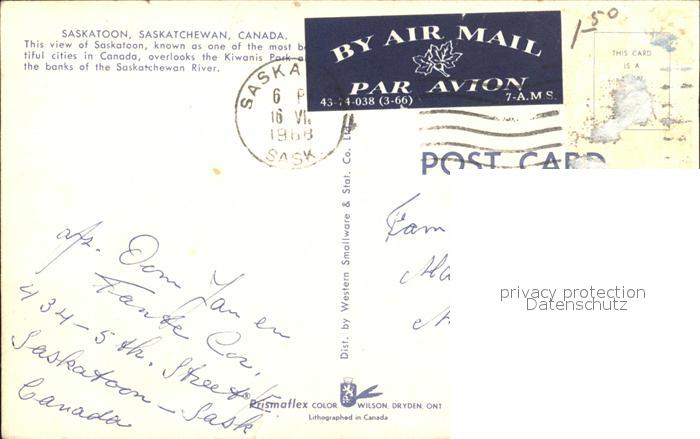 SASKATOON, SASKATCHEWAN, CANADA.
This view of Saskatoon, known as one of the most b
tiful cities in Canada, overlooks the Kiwanis Park
the banks of the Saskatchewan River.
BY AIR MAIL
PAR AVION
43-74-038 (3-66) 7-A.M.S.
1-50
THIS CARD
IS A
SASKA
6 P
16 VII
1968
SASK
POST CARD
Dist. by Western Smallware & Stat. Co. Ltd.
Oom Jan en
Tante Cor.
434-5th. Street
Saskatoon - Sask
Canada
Fam
privacy protection
Datenschutz
Prismaflex COLOR WILSON, DRYDEN, ONT
Lithographed in Canada